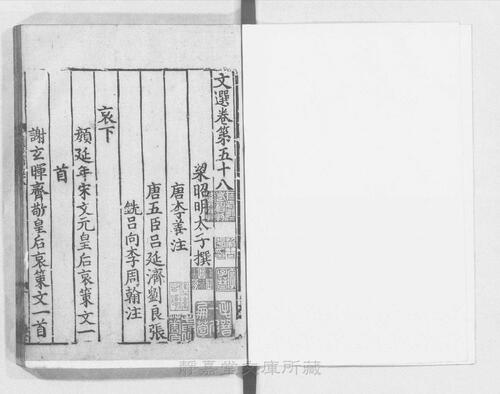 文選卷第五十八
梁昭明太子撰
唐李善注
唐五臣呂延濟劉良張
銑呂向李周翰注
哀下
顏延年宋文元皇后哀策文一
首
謝玄暉齊敬皇后哀策文一首
靜嘉堂文庫所藏